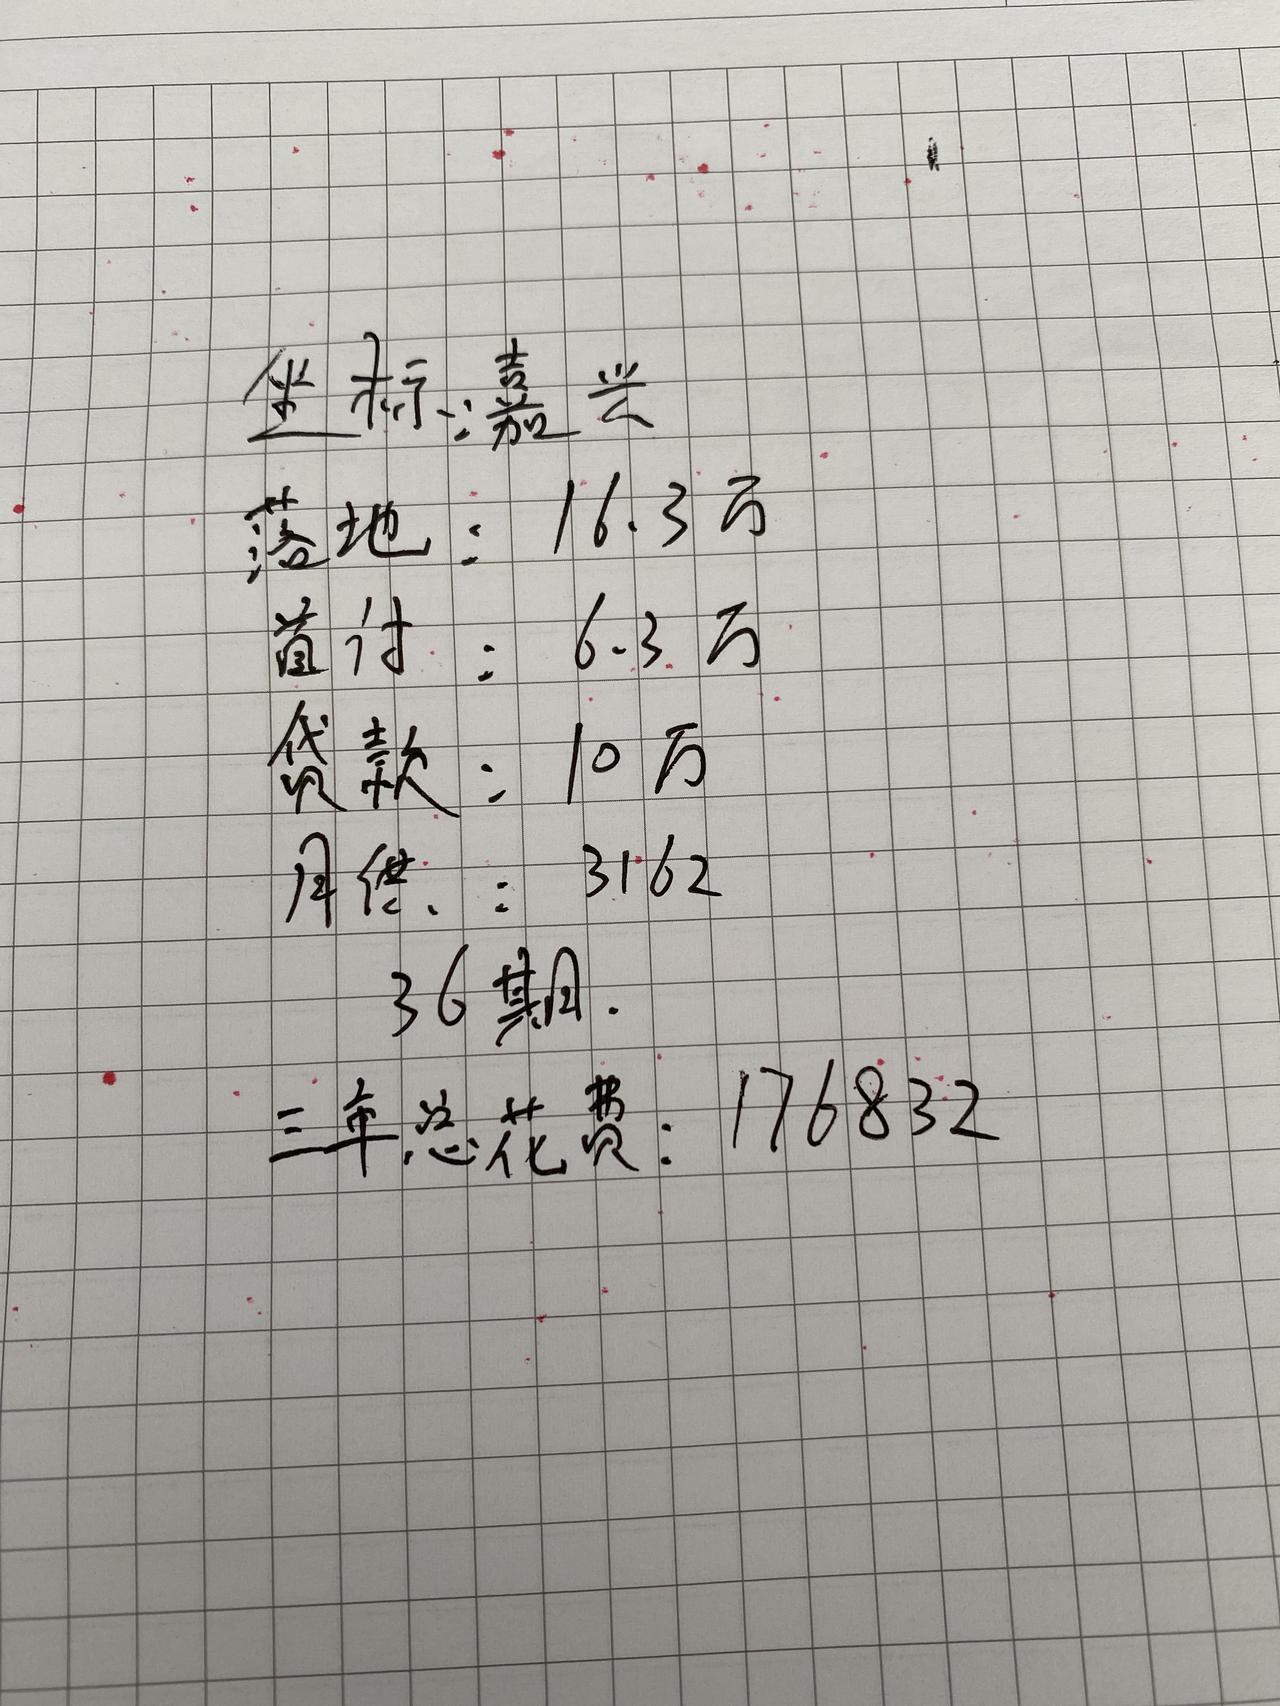 坐标:嘉兴
落地:16.3万
首付:6.3万
贷款:10万
月供:3162
36期.
三年总花费:176832